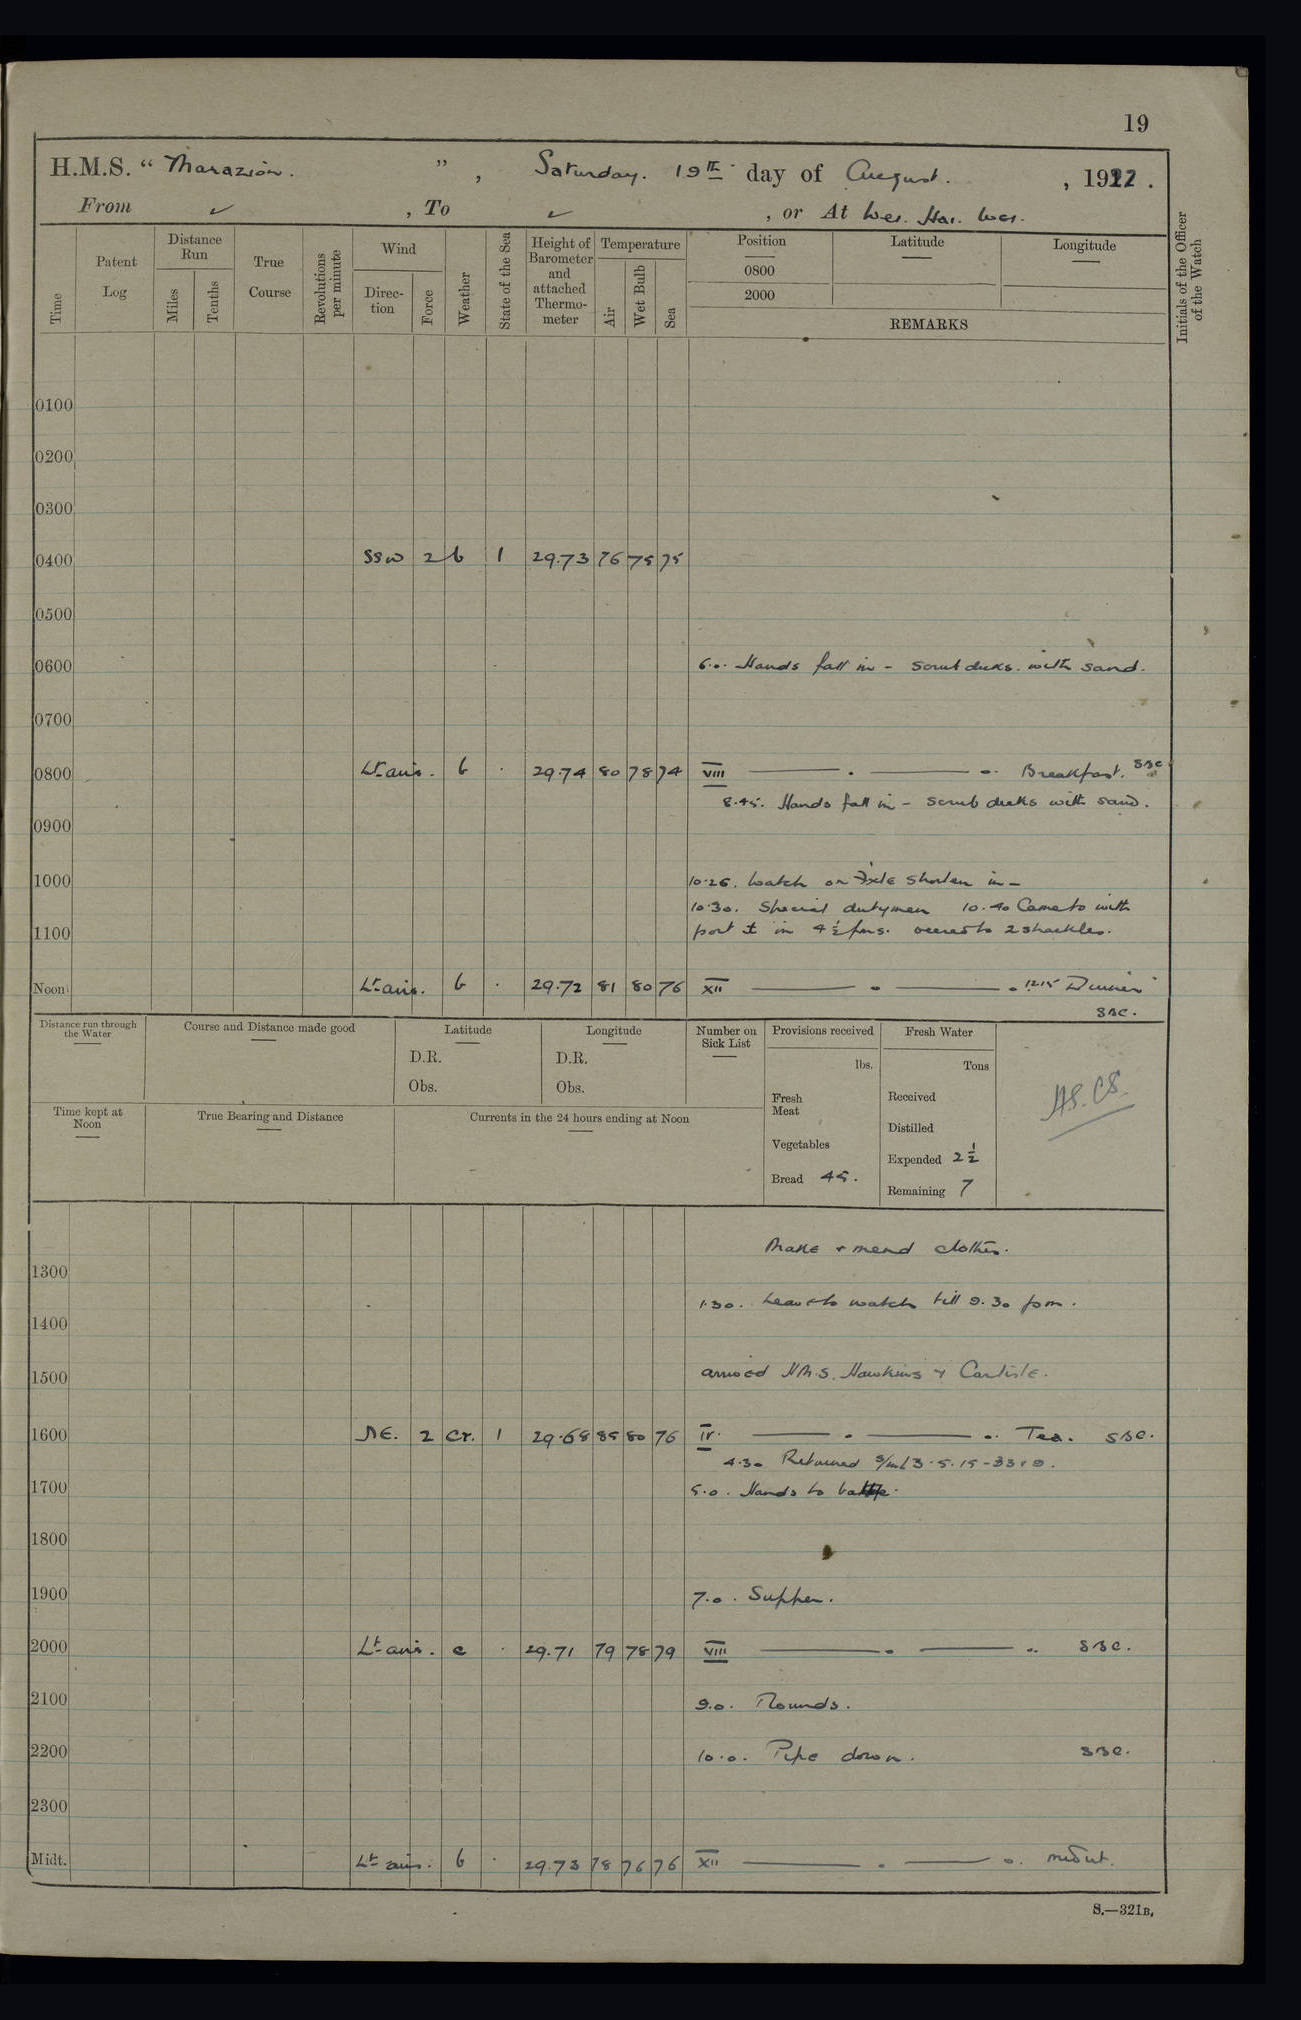 19
H.M.S. “ Marazion. ” , Saturday. 19th day of August. , 1922.
From ✓ , To ✓ , or At Wei. Hai. Wei.
Time
Patent Log
Distance Run
Miles
Tenths
True Course
Revolutions per minute
Wind
Direc-tion
Force
Weather
State of the Sea
Height of Barometer and attached Thermo-meter
Temperature
Air
Wet Bulb
Sea
Position
0800
2000
Latitude
Longitude
REMARKS
Initials of the Officer of the Watch
0100
0200
0300
0400 SSW 2 b 1 29.73 76 75 75
0500
0600 6.0. Hands fall in - Scrub decks. with sand.
0700
0800 Lt airs. b . 29.74 80 78 74 VIII Breakfast. SBC
8.45. Hands fall in - Scrub decks with sand.
0900
1000 10.26. Watch on Fxle Shorten in -
10.30. Special dutymen 10.40 Came to with
1100 port ⚓ in 4½ fms. veered to 2 shackles.
Noon Lt airs. b . 29.72 81 80 76 XII 12.15 Dinner
SBC.
Distance run through the Water
Course and Distance made good
Latitude
D.R.
Obs.
Longitude
D.R.
Obs.
Number on Sick List
Provisions received
lbs.
Fresh Meat
Vegetables
Bread 45.
Fresh Water
Tons
Received
Distilled
Expended 2½
Remaining 7
Time kept at Noon
True Bearing and Distance
Currents in the 24 hours ending at Noon
Make & mend clothes.
1300
1.30. Leave to watch till 9.30 pm.
1400
1500 arrived H.M.S. Hawkins & Carlisle.
1600 NE. 2 cr. 1 29.68 85 80 76 IV. Tea. SBC.
4.30 Returned S/m L3.5.15-33 & 9.
1700 5.0. Hands to bathe.
1800
1900 7.0. Supper.
2000 Lt airs. c . 29.71 79 78 79 VIII SBC.
2100 9.0. Rounds.
2200 10.0. Pipe down. SBC.
2300
Midt. Lt airs. b . 29.73 78 76 76 XII
S.—321B.